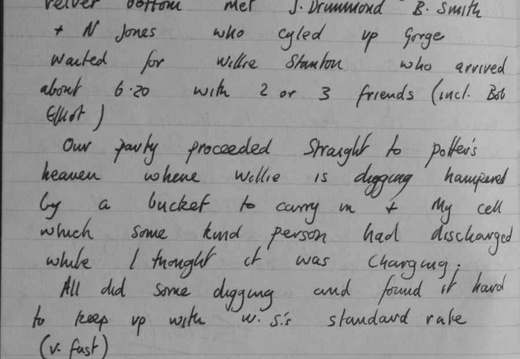 velver bottom met J. Drummond B. Smith
+ N Jones who cyled up Gorge
waited for Willie Stanton who arrived
about 6.20 with 2 or 3 friends (incl. Bob
Elliot)
Our party proceeded straight to potter's
heaven where Willie is digging hampered
by a bucket to carry in + my cell
which some kind person had discharged
while I thought it was charging.
All did some digging and found it hard
to keep up with W. S.'s standard rate
(v. fast)